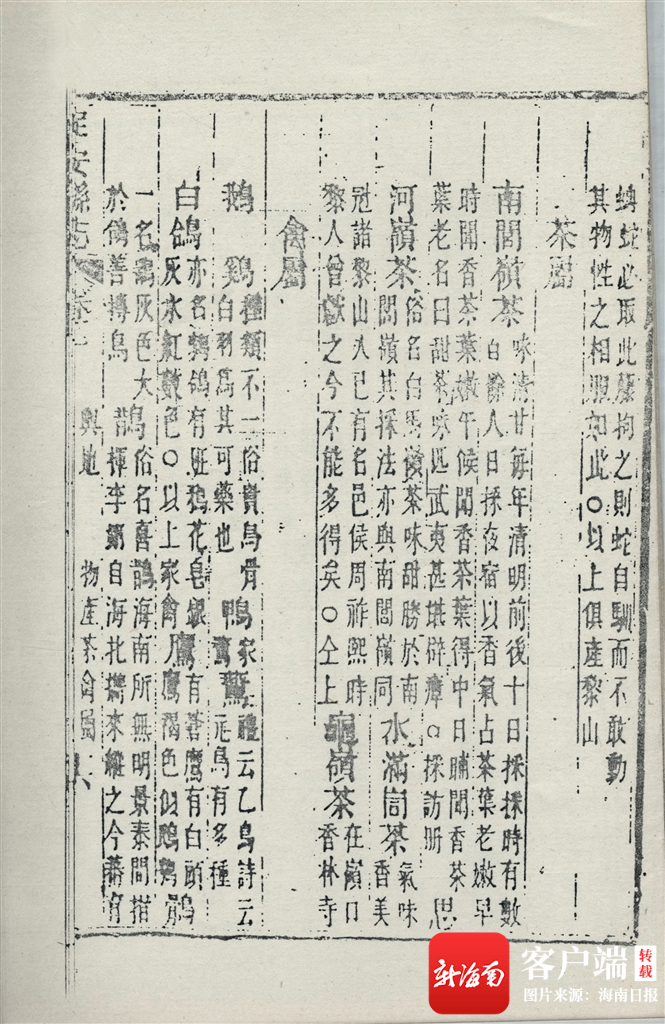 蚺蛇必取此藤拘之則蛇自馴而不敢動
其物性之相服如此○以上俱產黎山
茶屬
南閭嶺茶味清甘每年清明前後十日採採時有數
百餘人日採夜宿以香氣占茶葉老嫩早
時聞香茶葉嫩午候聞香茶葉得中日晡聞香茶
葉老名曰甜茶味匹武夷甚堪辟瘴○採訪册 思
河嶺茶俗名白馬嶺茶味甜勝於南
閭嶺其採法亦與南閭嶺同 水滿峒茶氣味
香美
冠諸黎山人已有名邑侯周祚熙時
黎人曾獻之今不能多得矣○仝上 龜嶺茶在嶺口
香林寺
禽屬
鵝 鷄種類不一俗貴烏骨
白羽爲其可藥也 鴨家
鶩 鷖禮云乙鳥詩云
元鳥有多種
白鴿亦名鵓鴿有斑鴉花皂銀
灰水紅數色○以上家禽 鷹有蒼鷹有白頭
鷹褐色似鴟 鶬
一名 灰色大
於鴿善搏鳥 鵲俗名喜鵲海南所無明景泰間指
揮李翊自海北攜來縱之今蕃育
定安縣志 卷一 輿地 物產茶禽屬 六
新海南
客户端
转载
图片来源：海南日报